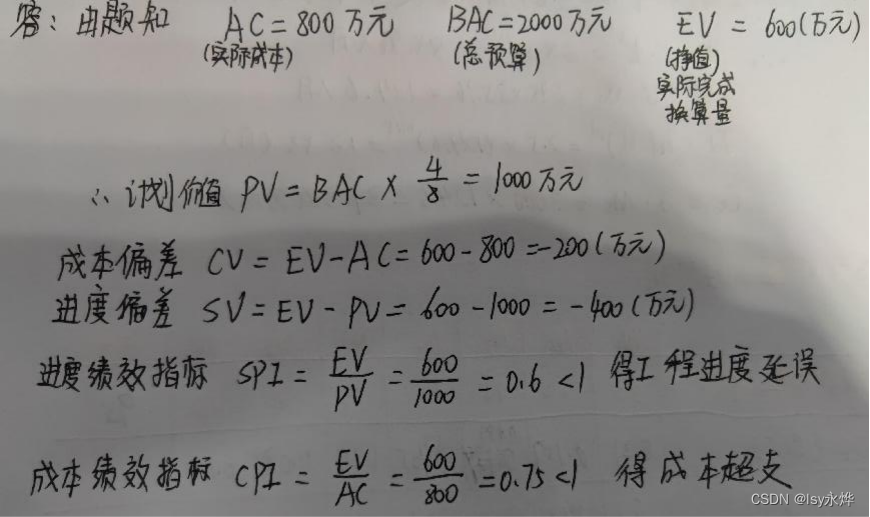 答：由题知 AC=800万元 BAC=2000万元 EV = 600(万元)
(实际成本) (总预算) (挣值)
实际完成
换算量
∴ 计划价值 PV = BAC × 4/8 = 1000万元
成本偏差 CV = EV-AC = 600-800 = -200(万元)
进度偏差 SV = EV - PV = 600 -1000 = -400(万元)
进度绩效指标 SPI = EV/PV = 600/1000 = 0.6 <1 得工程进度延误
成本绩效指标 CPI = EV/AC = 600/800 = 0.75 <1 得成本超支
CSDN @lsy永烨